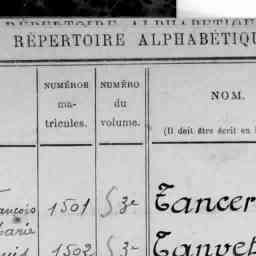 RÉPERTOIRE ALPHABÉTIQU
RÉPERTOIRE ALPHABÉTIQU
NUMÉROS ma- tricules.
NUMÉRO du volume.
NOM.
(Il doit être écrit en
ançois 1501 Tancer
Marie
uis 1502 Tanvet